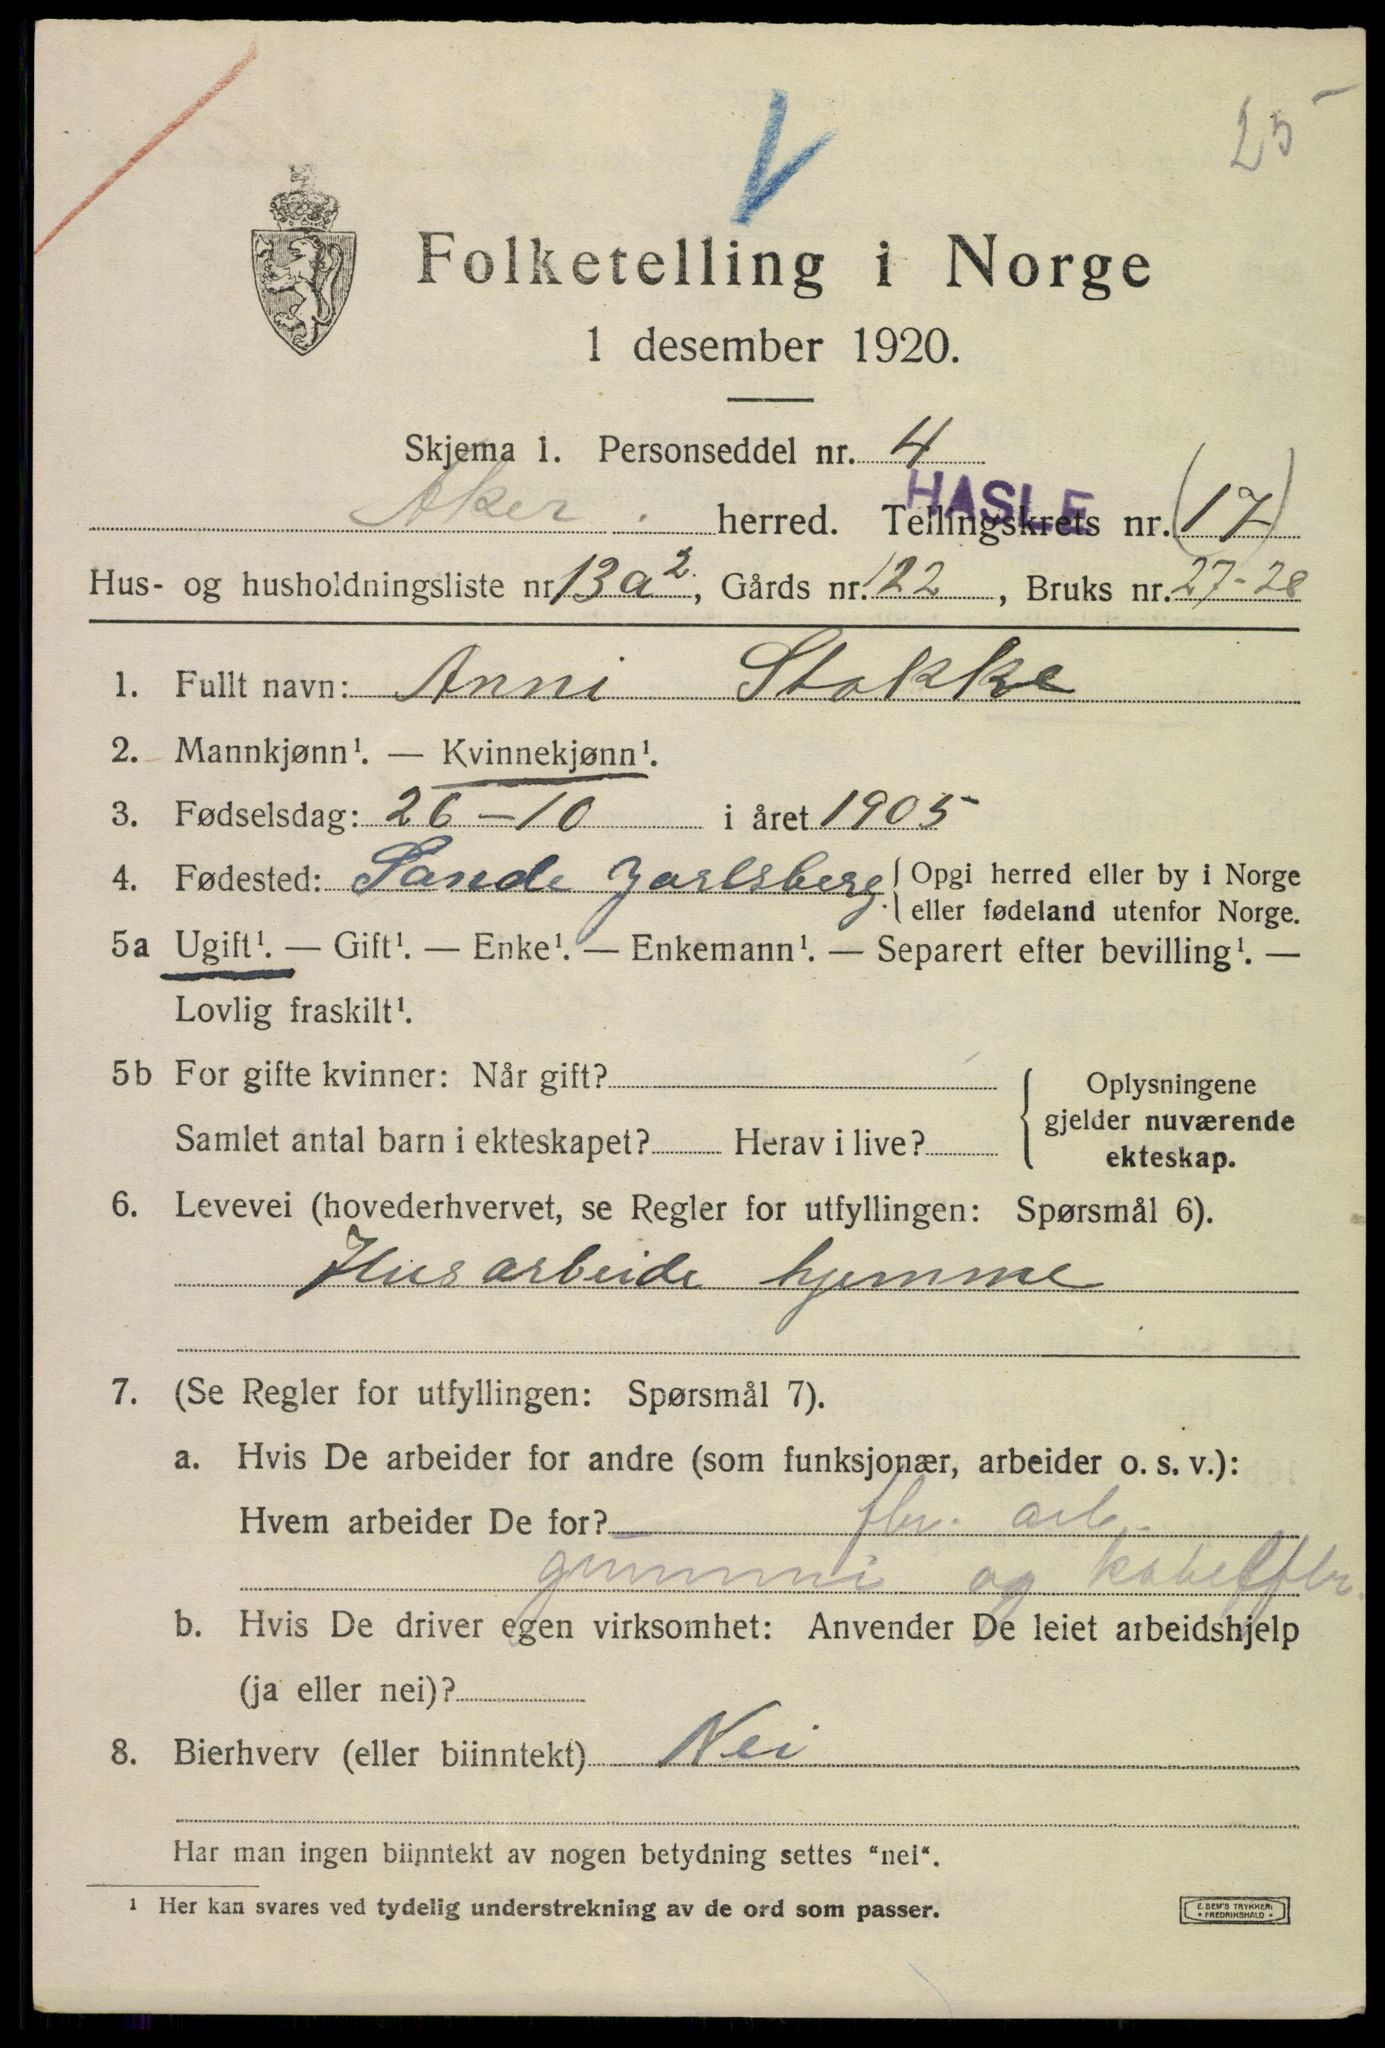 25
Folketelling i Norge
1 desember 1920.
Skjema 1. Personseddel nr. 4
HASLE
Aker herred. Tellingskrets nr. (17)
Hus- og husholdningsliste nr. 13a2, Gårds nr. 122, Bruks nr. 27-28
1. Fullt navn: Anni Stokke
2. Mannkjønn¹. — Kvinnekjønn¹.
3. Fødselsdag: 26-10 i året 1905
4. Fødested: Sande Jarlsberg. { Opgi herred eller by i Norge
eller fødeland utenfor Norge.
5a Ugift¹. — Gift¹. — Enke¹. — Enkemann¹. — Separert efter bevilling¹. —
Lovlig fraskilt¹.
5b For gifte kvinner: Når gift?
Samlet antal barn i ekteskapet? Herav i live?
{ Oplysningene
gjelder nuværende
ekteskap.
6. Levevei (hovederhvervet, se Regler for utfyllingen: Spørsmål 6).
Husarbeide hjemme
7. (Se Regler for utfyllingen: Spørsmål 7).
a. Hvis De arbeider for andre (som funksjonær, arbeider o. s. v.):
Hvem arbeider De for? fbr. arb.
gummi og kabelfbr.
b. Hvis De driver egen virksomhet: Anvender De leiet arbeidshjelp
(ja eller nei)?
8. Bierhverv (eller biinntekt) Nei
Har man ingen biinntekt av nogen betydning settes "nei".
¹ Her kan svares ved tydelig understrekning av de ord som passer.
E. SEM'S TRYKKERI
* FREDRIKSHALD *